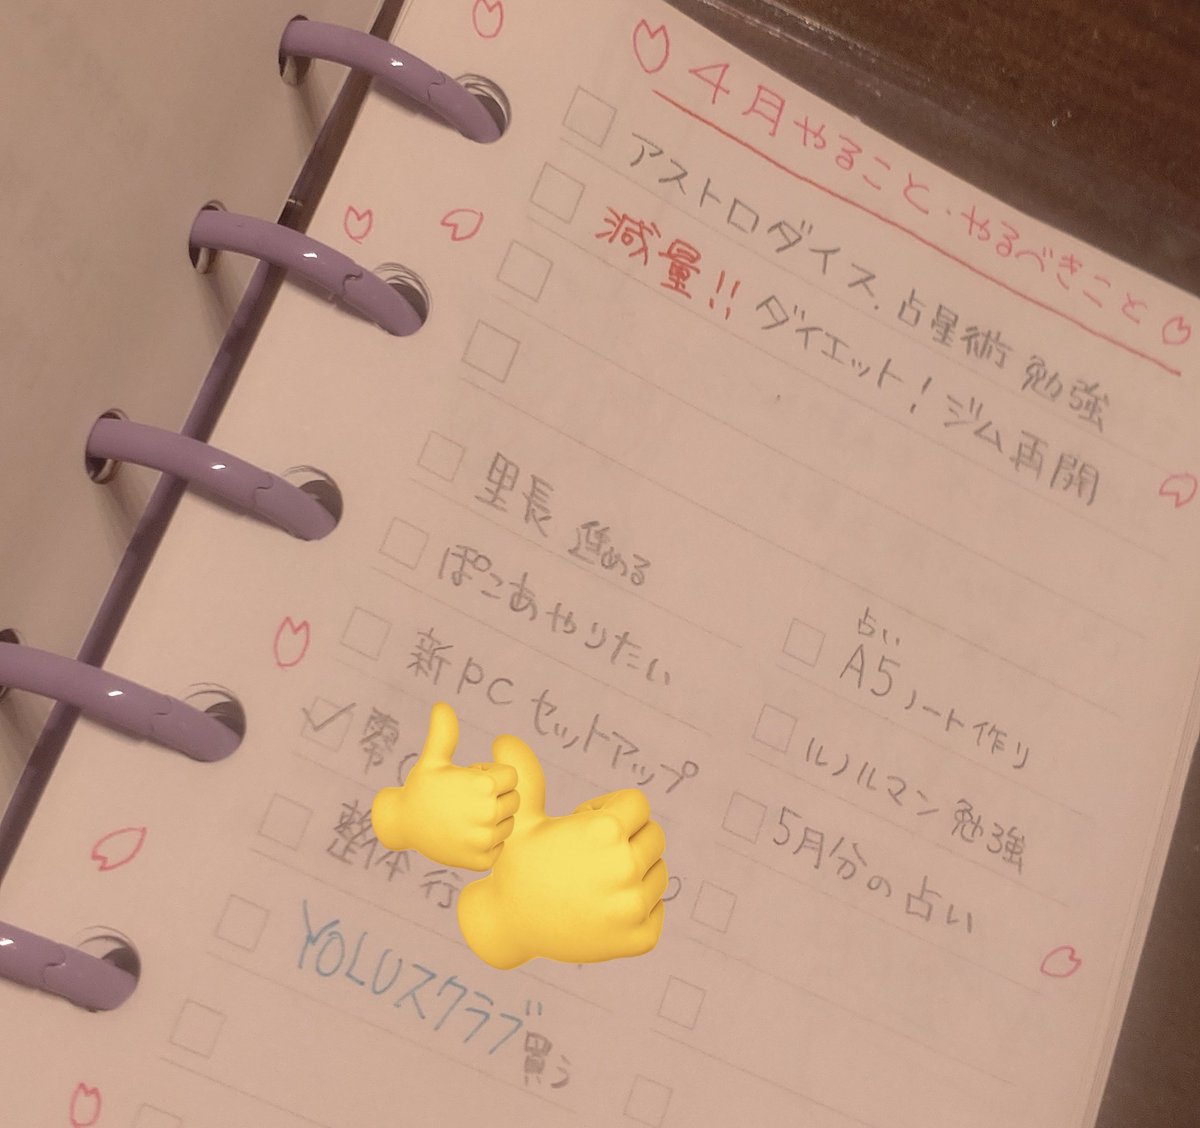 4月やること・やるべきこと
アストロダイス.占星術 勉強
減量!! ダイエット!ジム再開
里長 進める
ぽこあやりたい
新PCセットアップ
整体 行
YOLUスクラブ買う
占い
A5ノート作り
ルノルマン勉強
5月分の占い